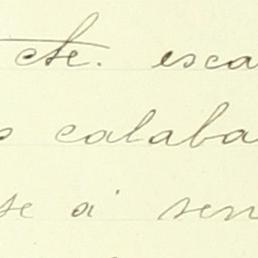 cte. esca
s calaba
se á sen